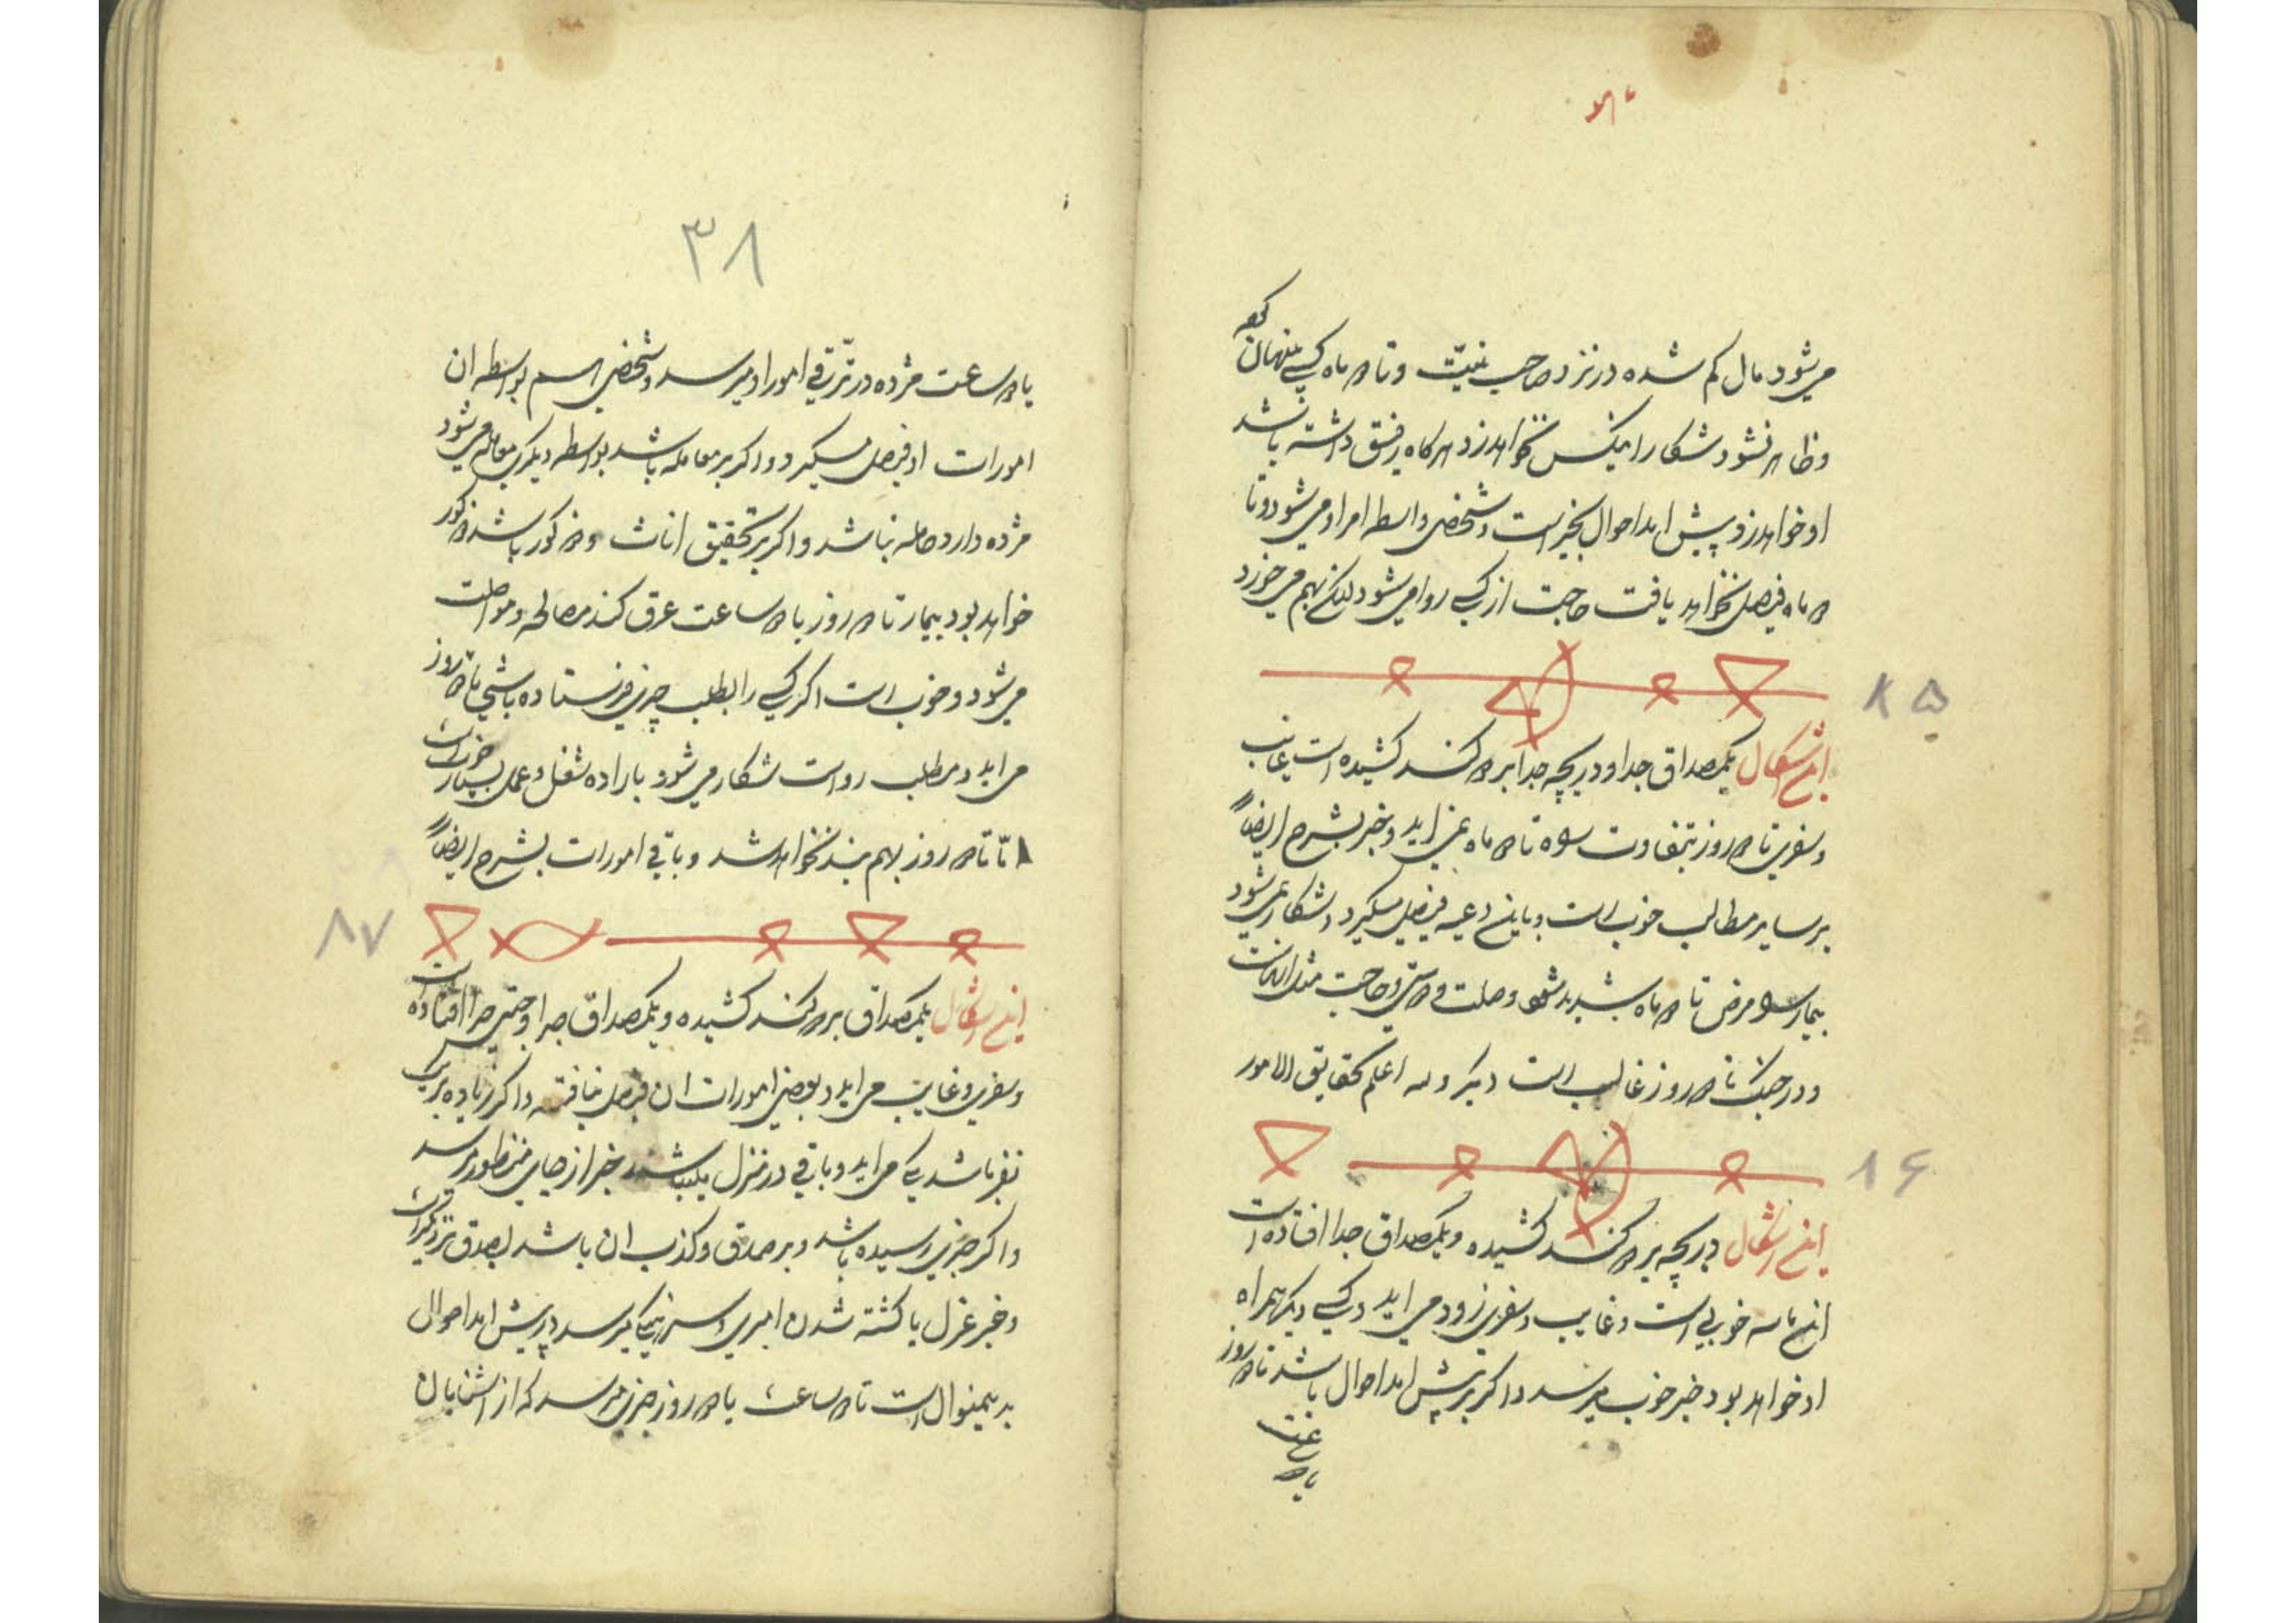 می‌شود مال کم شده در نزد صاحب نیت و تا ۵ ماه کسی پنهان کند
و ظاهر نشود شکار را بیکس نخواهد زد هرکاه رفیق داشته باشد
او خواهد زد و پیش امد احوال بخیر است و شخصی واسطه امر او می‌شود و تا
۵ ماه فیصل نخواهد یافت حاجت از کسی روا می‌شود لیکن بهم می‌خورد
۸۵
این اشکال یکمصداق جدا و دریچه جدا بر ۵ کمند کشیده است غایب
و سفری تا ۵ روز بتفاوت تا ۵ ماه می اید و خبر بشرح ایضاً
بر سایر مطالب خوب است و باین فیصل میکیرد و شکار می‌شود
بیمار مرض تا ۵ ماه شدید شود وصلت و حاجت
و در جنک تا ۵ روز غالب است دیکر والله اعلم بحقایق الامور
۸۶
این اشکال دریچه بر ۵ کمند کشیده و یکمصداق جدا افتاده است
این خوبی است و غایب و سفری زود می اید و کسی دیکر همراه
او خواهد بود خبر خوب میرسد و اکر بر پیش امد احوال باشد تا ۵ روز
۳۸
یا ۵ ساعت مژده در ترقی امور او میرسد و شخصی هم بواسطه ان
امورات او فیصل میکیرد و اکر بر معامله باشد بواسطه دیکری معامله می‌شود
مژده دارد حامله نباشد و اکر بر تحقیق اناث و ذکور باشد ذکور
خواهد بود بیمار تا ۵ روز یا ۵ ساعت عرق کند مصالحه و مواصلت
می‌شود و خوب است اکر کسی را بطلب چیزی فرستاده باشی تا ۵ روز
می اید و مطلب رواست شکار می‌شود باراده شغل و عمل بسیار خوب است
امّا تا ۵ روز بهم بند نخواهد شد و باقی امورات بشرح ایضاً
۸۷
این اشکال یکمصداق بر ۵ کمند کشیده و یکمصداق جدا و جفتی جدا افتاده است
و سفری و غایب می اید و بعضی امورات ان فیصل نیافته و اکر زیاده بر یک
نفر باشد یکی می اید و باقی در منزل باشند خبر از جای منظور میرسد
و اکر خبری رسیده باشد و بر صدق و کذب ان باشد بصدق نزدیکتر است
و خبر عزل یا کشته شدن امیری و میرسد و پیش امد احوال
بدینمنوال است تا ۵ ساعت یا ۵ روز خبری میرسد که از اشنایان